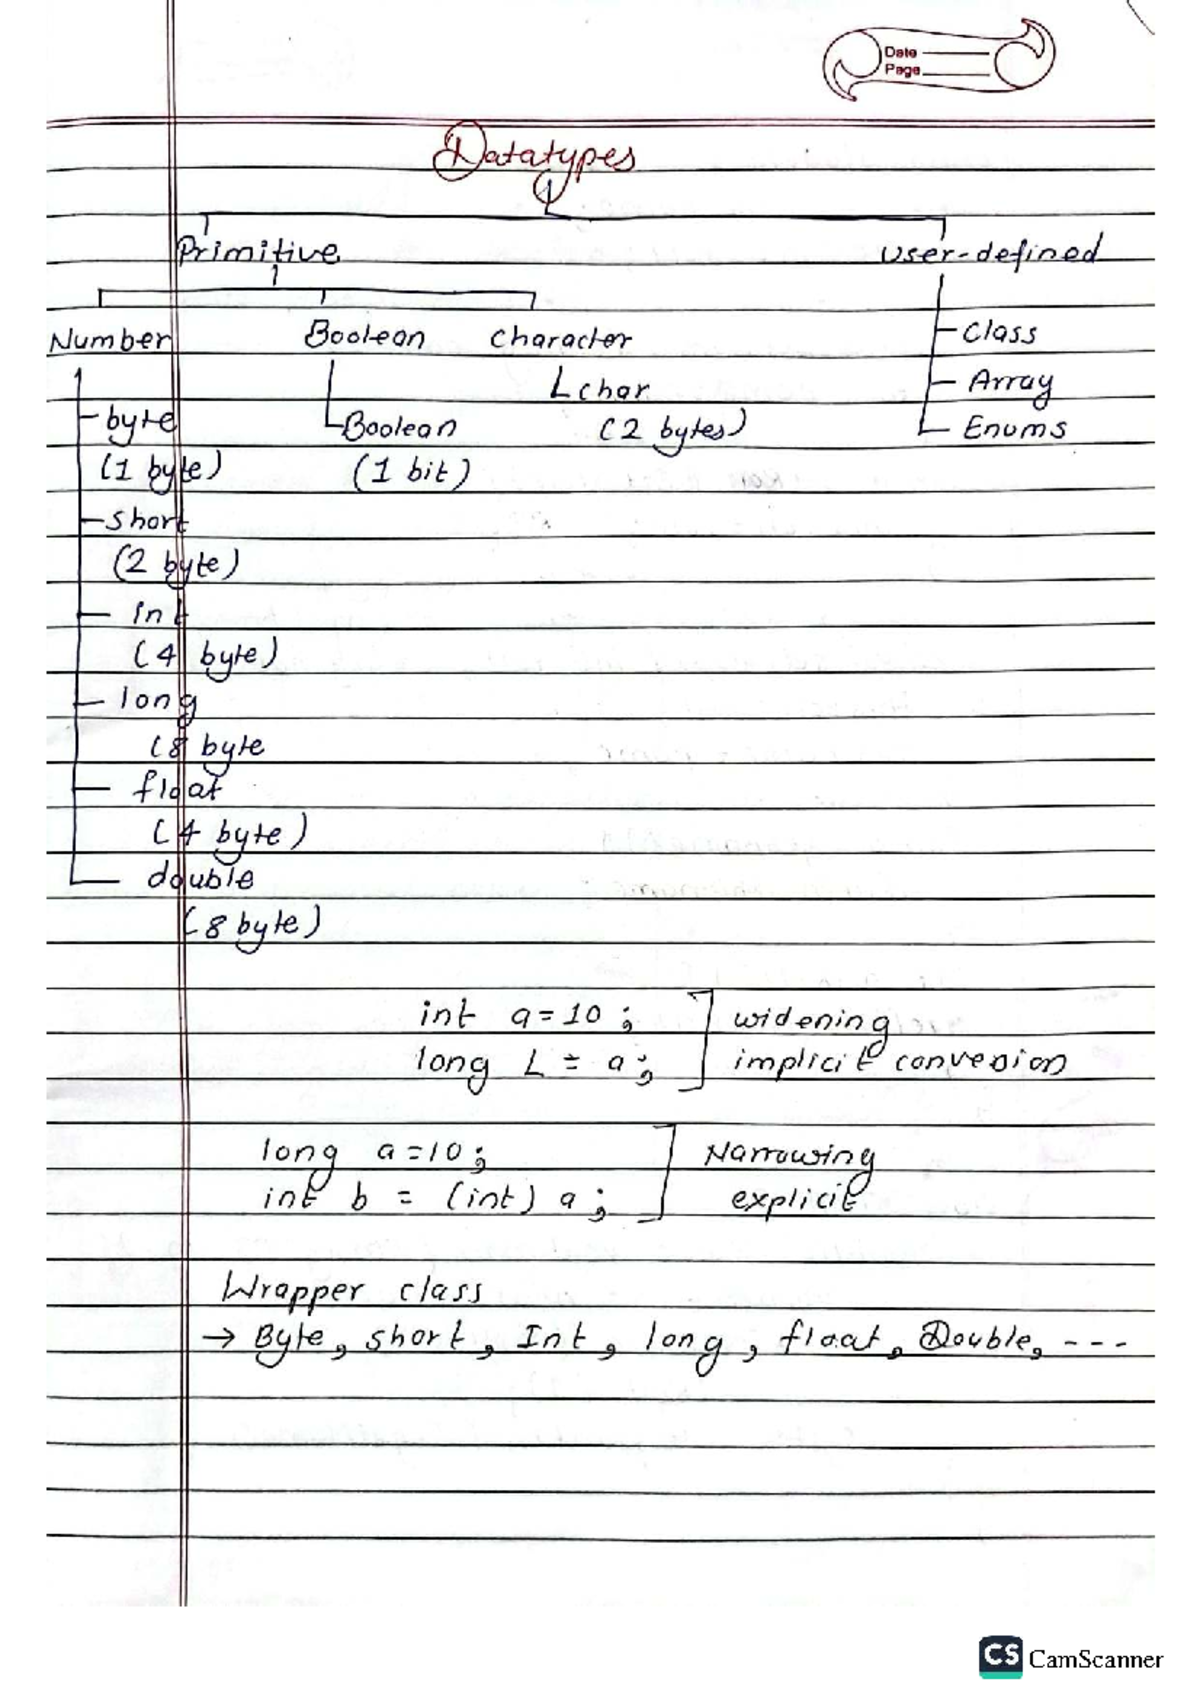 Date
Page
Datatypes
Primitive User-defined
Number Boolean Character Class
char Array
byte Boolean (2 bytes) Enums
(1 byte) (1 bit)
short
(2 byte)
int
(4 byte)
long
(8 byte
float
(4 byte)
double
(8 byte)
int a=10; widening
long L = a; implicit convesion
long a=10; Narrowing
int b = (int) a; explicit
Wrapper class
→ Byte, short, Int, long, float, Double, ---
CS CamScanner